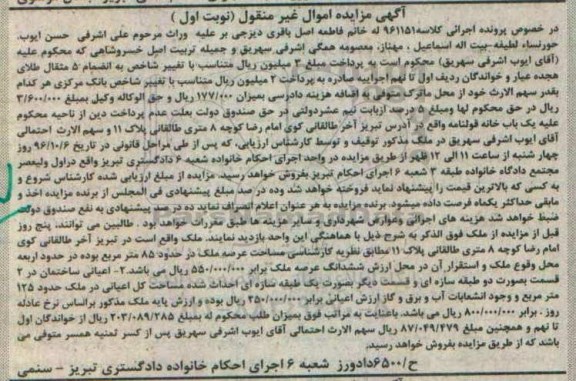 آگهی مزایده اموال غیر منقول (نوبت اول )
در خصوص پرونده اجرائی کلاسه ۹۶۱۱۵۱ له خانم فاطمه اصل باقری دیزجی بر علیه وراث مرحوم علی اشرفی حسن ایوب،
حورنساء لطیفه-بیت اله اسماعیل ، مهناز، معصومه همگی اشرفی سهریق و جمیله تربیت اصل خسروشاهی که محکوم علیه
(آقای ایوب اشرفی سهریق) محکوم است به پرداخت مبلغ ۳ میلیون ریال متناسب با تغییر شاخص به انضمام ۵ مثقال طلای
هجده عیار و خواندگان ردیف اول تا نهم اجراییه صادره به پرداخت ۲ میلیون ریال متناسب با تغییر شاخص بانک مرکزی هر کدام
بقدر سهم الارث خود از محل ماترک متوفی به اضافه هزینه دادرسی بمیزان ۱۷۷/۰۰۰ ریال و حق الوکاله وکیل بمبلغ ۳/۶۰۰/۰۰۰
ریال در حق محکوم لها ومبلغ ۵ درصد ازبابت نیم عشردولتی در حق صندوق دولت بعلت عدم پرداخت دین از ناحیه محکوم
علیه یک باب خانه قولنامه واقع در آدرس تبریز آخر طالقانی کوی امام رضا کوچه ۸ متری طالقانی پلاک ۱۱ و سهم الارث احتمالی
آقای ایوب اشرفی سهریق در ملک مذکور توقیف و توسط کارشناس ارزیابی، که پس از طی مراحل قانونی در تاریخ ۹۶/۱۰/۶ روز
چهار شنبه از ساعت ۱۱ الی ۱۲ ظهر از طریق مزایده در واحد اجرای احکام خانواده شعبه ۶ دادگستری تبریز واقع دراول ولیعصر
مجتمع دادگاه خانواده طبقه ۳ شعبه ۶ اجرای احکام تبریز بفروش خواهد رسید، مزایده از مبلغ ارزیابی شده کارشناس شروع و
به کسی که بالاترین قیمت را پیشنهاد نماید فروخته خواهد شد وده در صد مبلغ پیشنهادی فی المجلس از برنده مزایده اخذ و
مابقی حداکثر یکماه فرصت داده میشود، برنده مزایده به هر عنوان اعلام انصراف نماید ده در صد پیشنهادی به نفع صندوق دولت
ضبط خواهد شد هزینه های اجرائی وعوارض شهرداری و سایر هزینه ها طبق مقررات خواهد بود . طالبین می توانند، پنج روز
قبل از مزایده از ملک فوق الذکر به شرح ذیل با هماهنگی این واحد بازدید نمایند. ملک واقع است در تبریز آخر طالقانی کوی
امام رضا کوچه ۸ متری طالقانی پلاک ۱۱ مطابق نظریه کارشناسی مساحت عرصه ملک در حدود ۸۵ متر مربع بوده در حدود اربعه
محل وقوع ملک و استقرار آن در محل ارزش ششدانگ عرصه ملک برابر ۵۵۰/۰۰۰/۰۰۰ ریال می باشد. ۲- اعیانی ساختمان در ۲
قسمت بصورت دو طبقه سازه ای و قسمت دیگر بصورت یک طبقه سازه ای احداث شده مساحت کل اعیانی در ملک حدود ۱۲۵
متر مربع و وجود انشعابات آب و برق و گاز ارزش اعیانی برابر ۲۵۰/۰۰۰/۰۰۰ ریال بوده و ارزش پایه ملک مذکور براساس نرخ عادله
روز ، برابر ۸۰۰/۰۰۰/۰۰۰ ریال می باشد، باعنایت به مراتب فوق بمیزان طلب محکوم له بمبلغ ۲۰۳/۰۸۹/۲۸۵ ریال از خواندگان اول
تا نهم و همچنین مبلغ ۸۷/۰۴۹/۴۷۹ ریال سهم الارث احتمالی آقای ایوب اشرفی سهریق پس از کسر ثمنیه همسر متوفی می
باشد که از طریق مزایده بفروش خواهد رسید.
ح/۶۵۰۰دادورز شعبه ۶ اجرای احکام خانواده دادگستری تبریز - سنمی